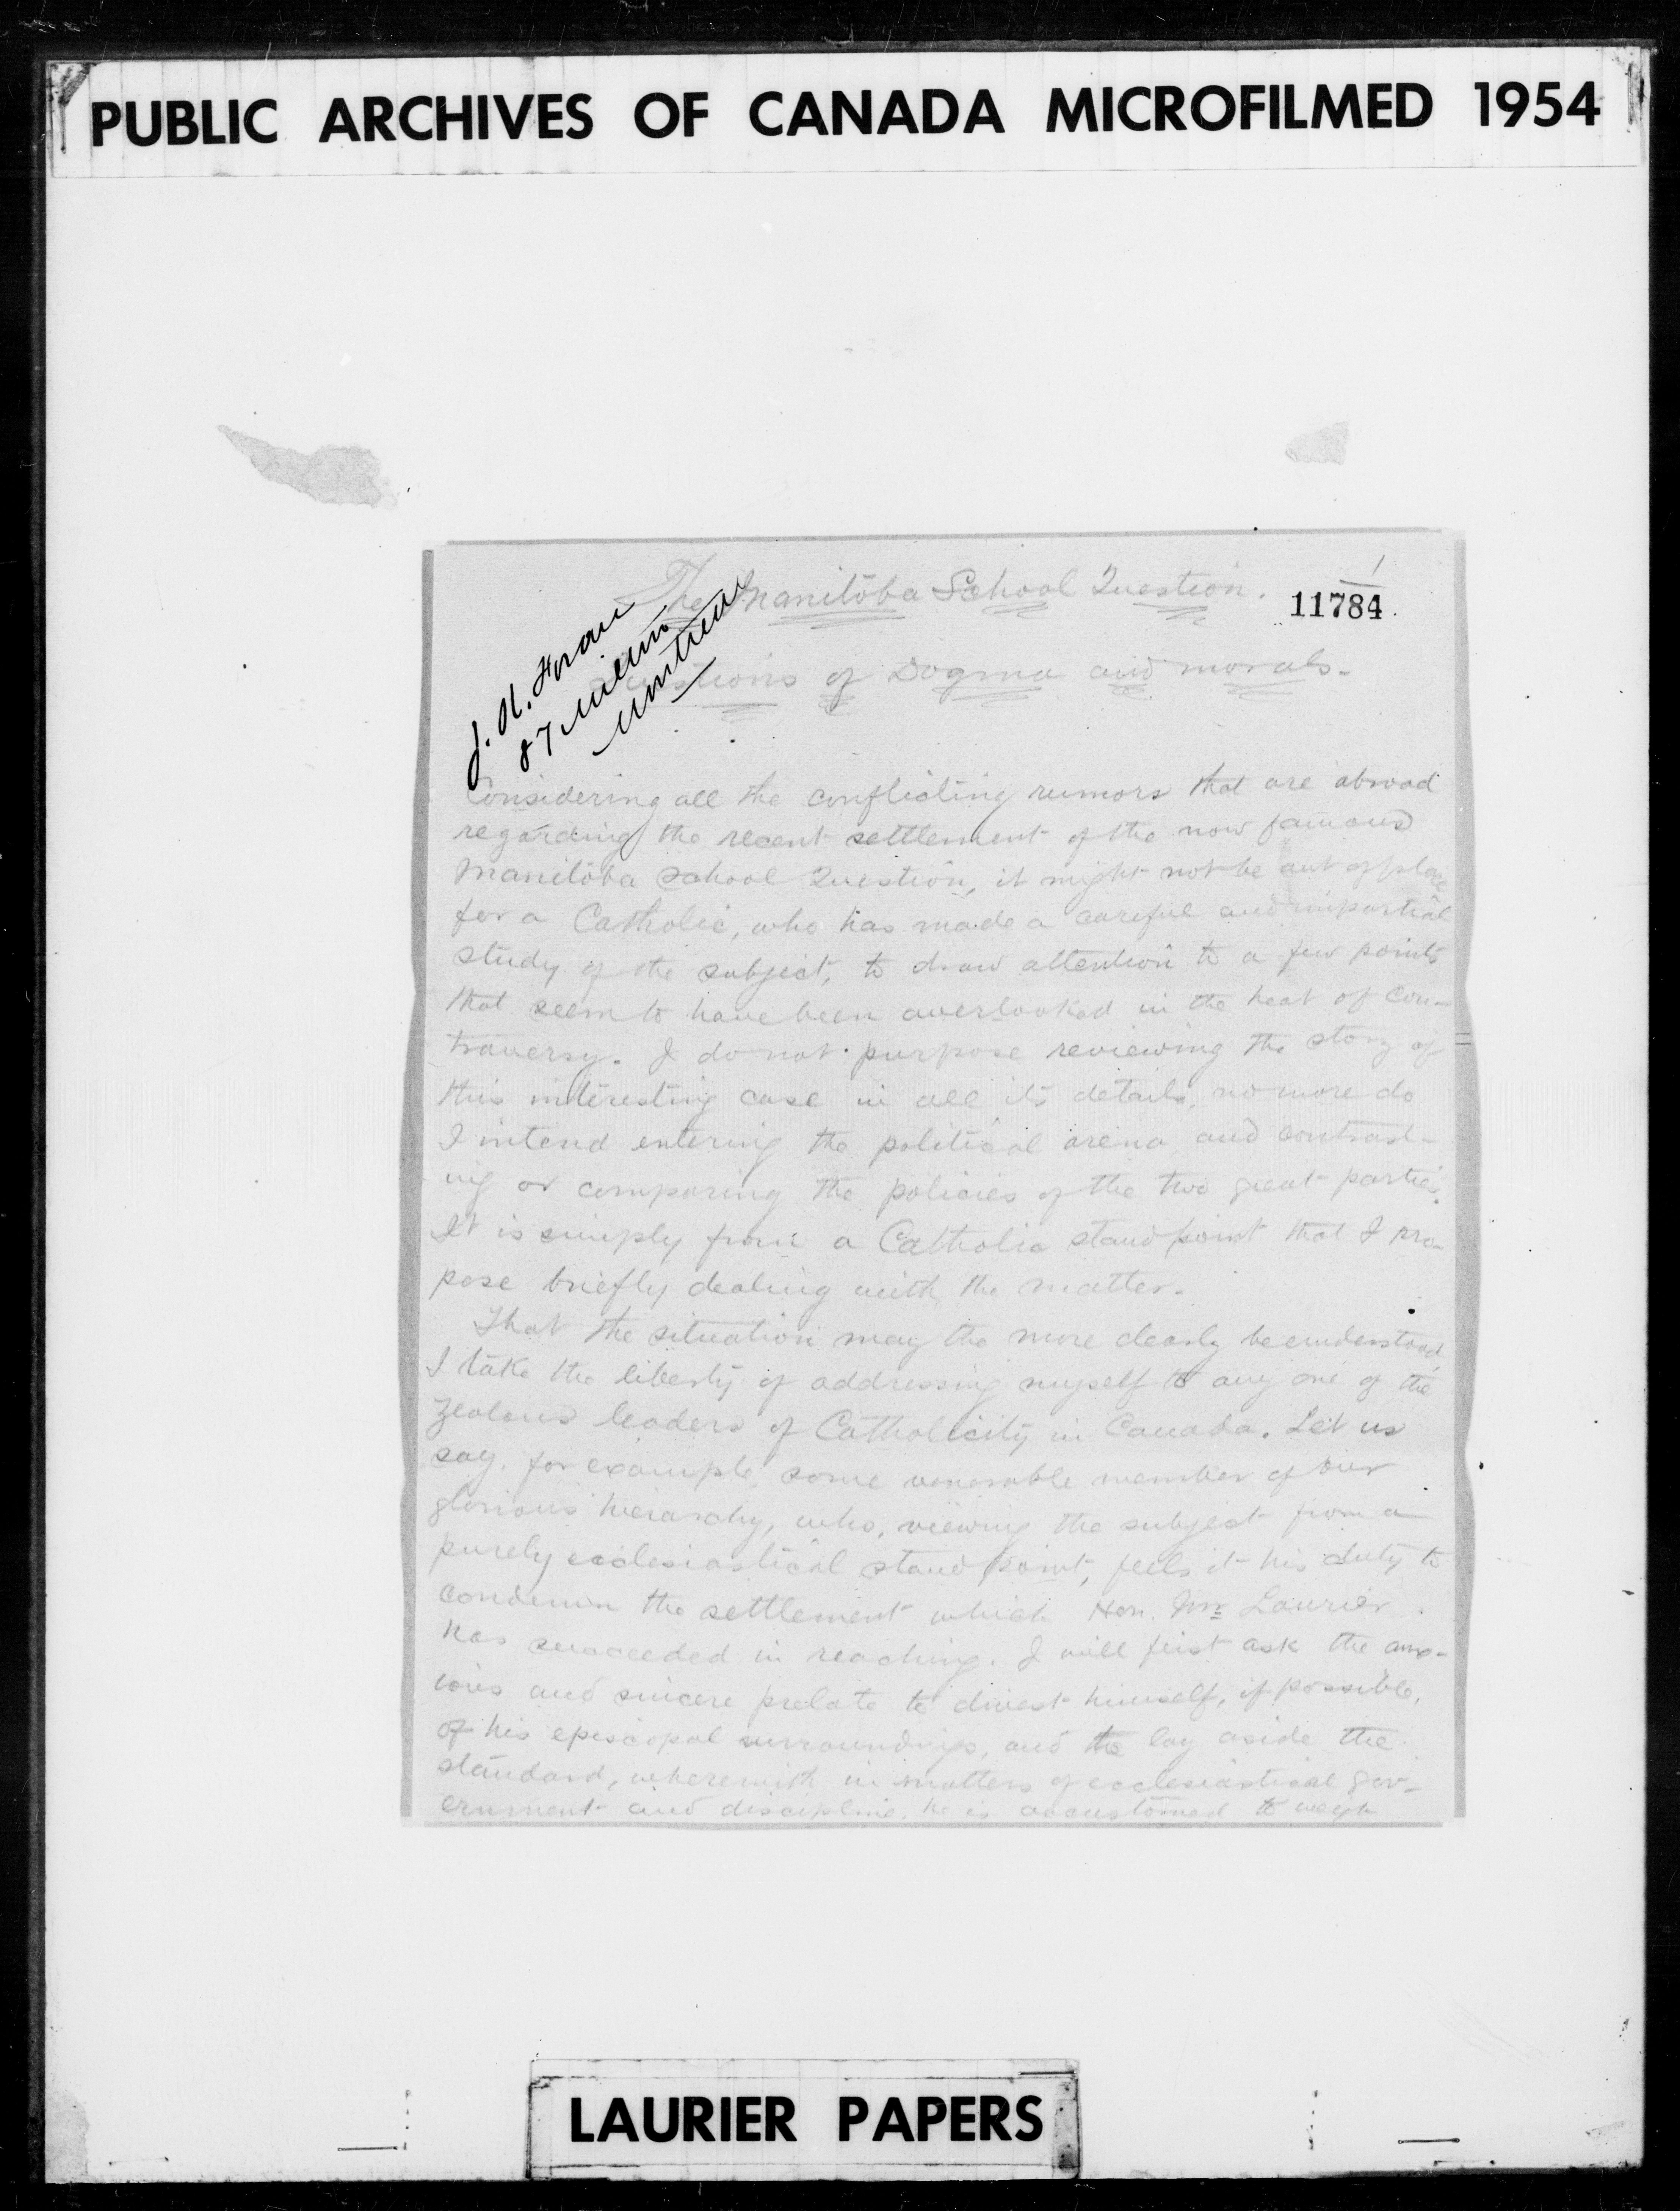 PUBLIC ARCHIVES OF CANADA MICROFILMED 1954
1
The Manitoba School Question.
11784.
Questions of Dogma and morals.
J. K. Foran
87
Montreal
Considering all the conflicting rumors that are abroad
regarding the recent settlement of the now famous
Manitoba School Question, it might not be out of place
for a Catholic, who has made a careful and impartial
study of the subject, to draw attention to a few points
that seem to have been overlooked in the heat of con-
traversy. I do not purpose reviewing the story of
this interesting case in all its details, no more do
I intend entering the political arena and contrast-
ing or comparing the policies of the two great parties.
It is simply from a Catholic stand point that I pro-
pose briefly dealing with the matter.
That the situation may the more clearly be understood,
I take the liberty of addressing myself to any one of the
zealous leaders of Catholicity in Canada. Let us
say, for example, some venerable member of our
glorious hierarchy, who, viewing the subject from a
purely ecclesiastical stand point, feels it his duty to
condemn the settlement which Hon. Mr. Laurier
has succeeded in reaching. I will first ask the anx-
ious and sincere prelate to divest himself, if possible,
of his episcopal surroundings, and to lay aside the
standard, wherewith in matters of ecclesiastical gov-
ernment and discipline, he is accustomed to weigh
LAURIER PAPERS